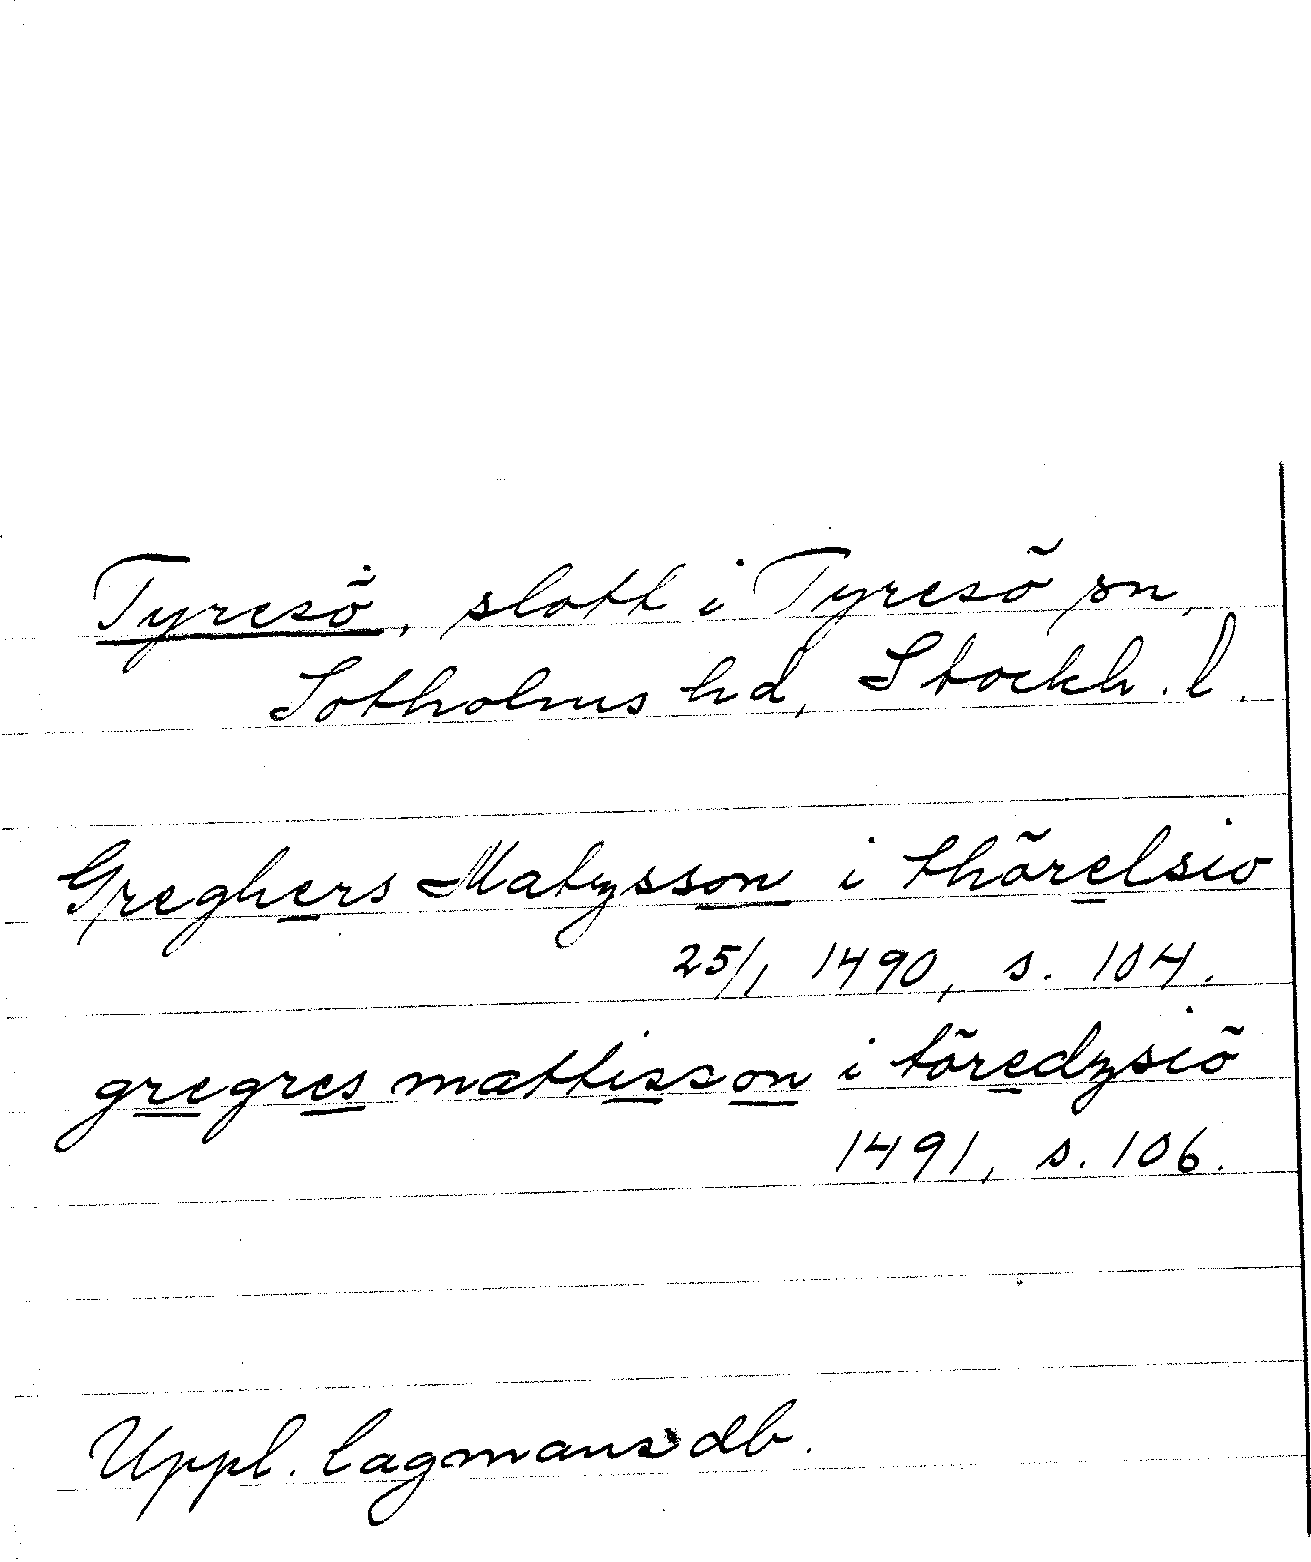 Tyresö, slott i Tyresö sn,
Sotholms hd, Stockh. l.
Greghers Matysson i thörelsio
25/1 1490, s. 104.
gregres mattisson i töredzsiö
1491, s. 106.
Uppl. lagmansdb.